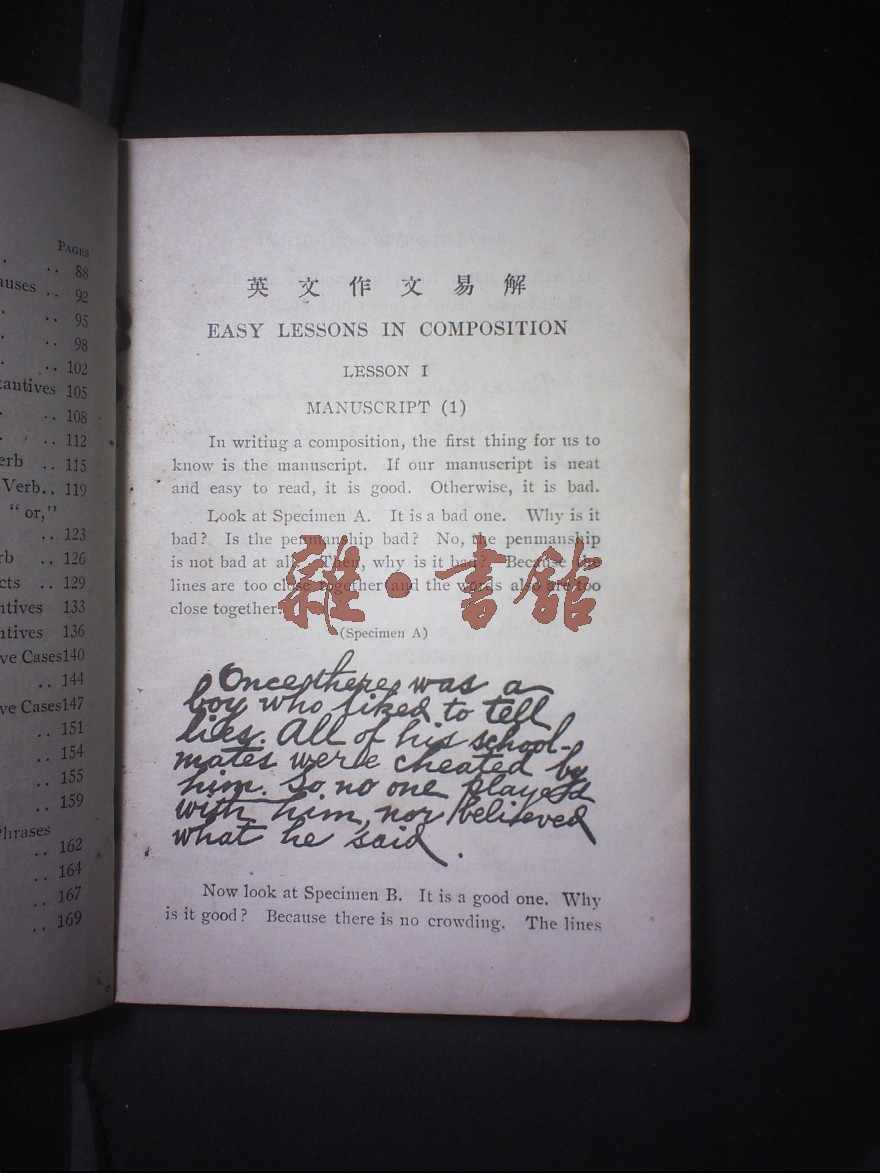 PAGES
.. 88
auses .. 92
.. 95
.. 98
.. 102
tantives 105
.. 108
.. 112
erb .. 115
Verb.. 119
“or,”
.. 123
rb .. 126
cts .. 129
ntives 133
ntives 136
ve Cases140
.. 144
ve Cases147
.. 151
.. 154
.. 155
.. 159
Phrases
.. 162
.. 164
.. 167
.. 169
英文作文易解
EASY LESSONS IN COMPOSITION
LESSON I
MANUSCRIPT (1)
In writing a composition, the first thing for us to
know is the manuscript. If our manuscript is neat
and easy to read, it is good. Otherwise, it is bad.
Look at Specimen A. It is a bad one. Why is it
bad? Is the penmanship bad? No, the penmanship
is not bad at all. Then, why is it bad? Because the
lines are too close together and the words also are too
close together.
雜·書館
(Specimen A)
Once there was a
boy who liked to tell
lies. All of his school-
mates were cheated by
him. So no one played
with him, nor believed
what he said.
Now look at Specimen B. It is a good one. Why
is it good? Because there is no crowding. The lines